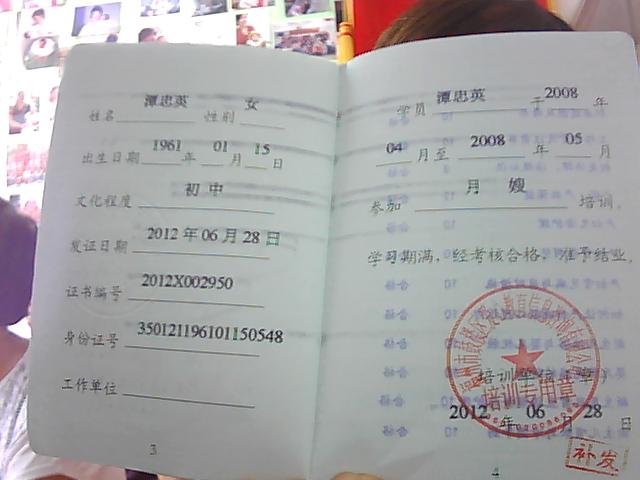 姓名 潭忠英 性别 女
出生日期 1961 年 01 月 15 日
文化程度 初中
发证日期 2012年06月28日
证书编号 2012X002950
身份证号 350121196101150548
工作单位
3
学员 潭忠英 于 2008 年
04 月至 2008 年 05 月
参加 月嫂 培训,
学习期满,经考核合格,准予结业。
培训专用章
2012 年 06 月 28 日
补发
4